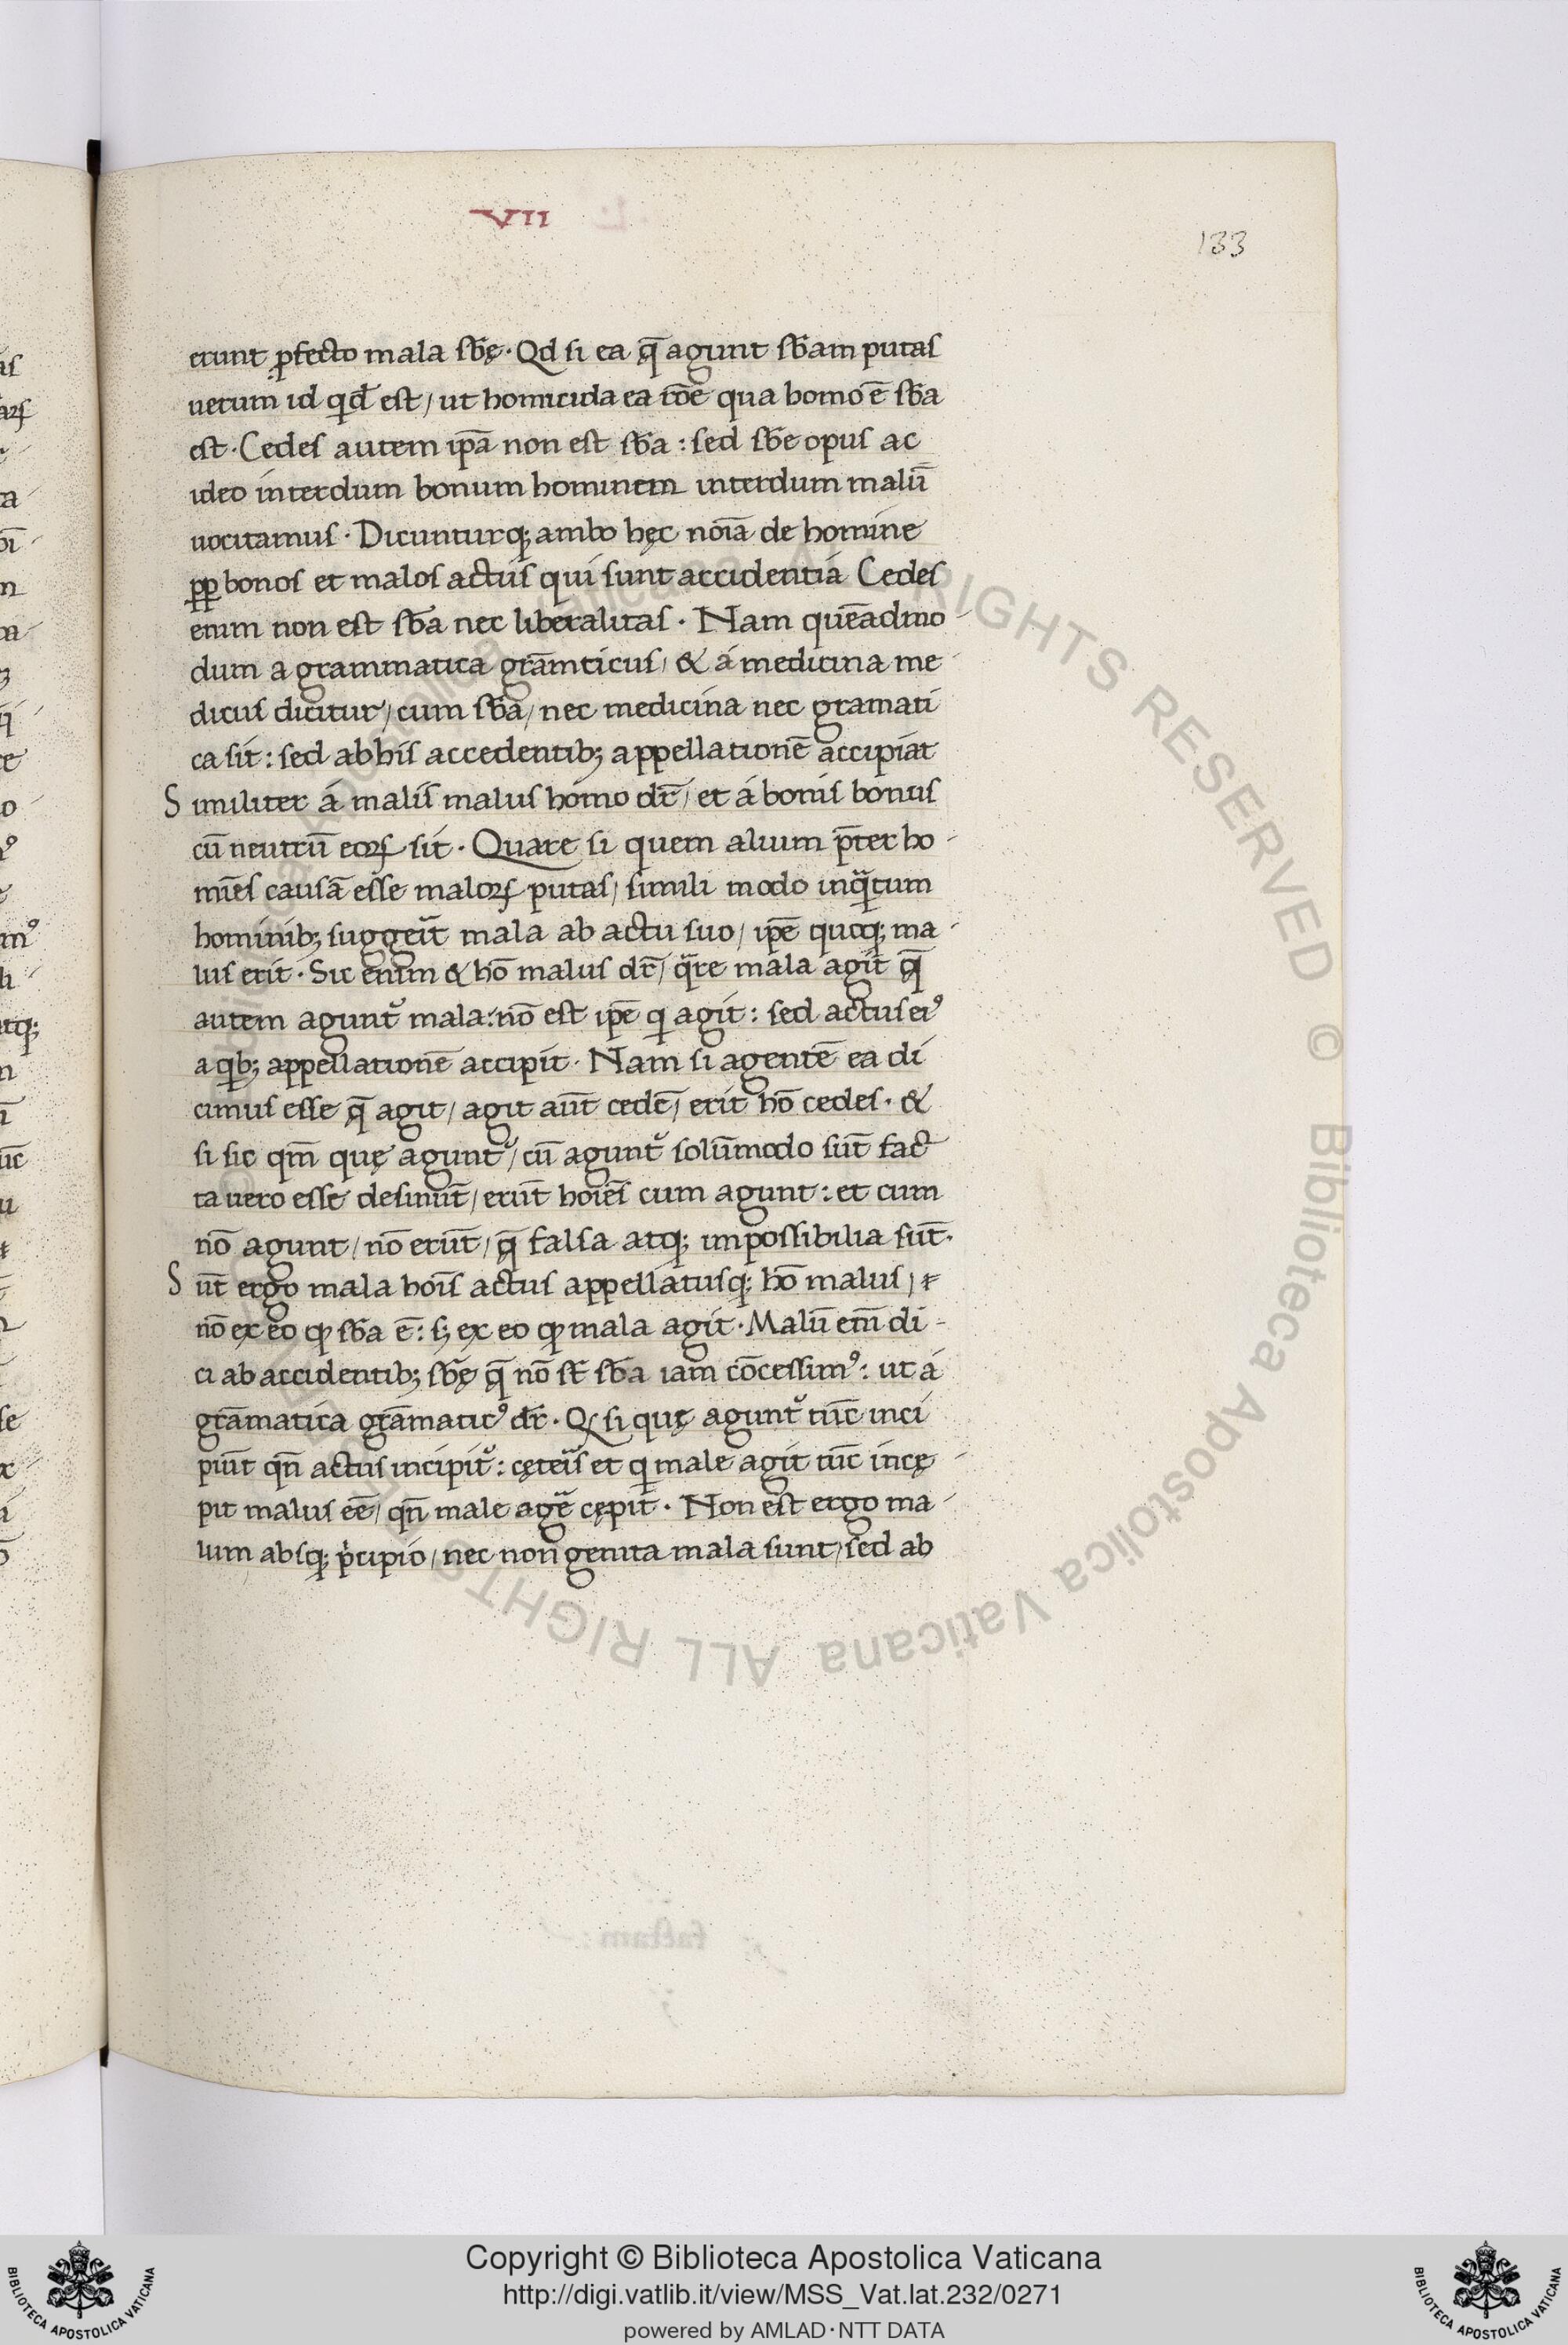 VII
133
erunt ꝓfecto mala sb̄ę · Qd si ea q̄ agunt sb̄am putas
uerum id qd̄ est / ut homicida ea rōe qua homo ē sb̄a
est · Cedes autem ip̄a non est sb̄a : sed sb̄e opus ac
ideo interdum bonum hominem interdum malū
uocitamus · Dicunturq; ambo hęc noīa de homine
ꝓp bonos et malos actus qui sunt accidentia Cedes
enim non est sb̄a nec liberalitas · Nam quēadmo
dum a grammatica grāmticus / & á medicina me
dicus dicitur / cum sb̄a / nec medicina nec gramati
ca sit : sed ab his accedentib; appellationē accipiat
Similiter á malis malus homo dr̄ / et á bonis bonus
cū neutrū eoꝝ sit · Quare si quem alium p̄ter ho
mīes causā esse maloꝝ putas / simili modo inq̄tum
hominib; suggeit mala ab actu suo / ip̄e quoq; ma
lus erit · Sic enim & hō malus dr̄ / q̄re mala agit q̄
autem agunt᷑ mala : nō est ip̄e q agit : sed actus eiꝰ
a qb; appellationē accipit · Nam si agentē ea di
cimus esse q̄ agit / agit aūt cedē / erit hō cedes · &
si sic qm̄ quę agunt᷑ / cū agunt᷑ solūmodo sūt fac
ta uero esse desinūt / erūt hoīes cum agunt : et cum
nō agunt / nō erūt / q̄ falsa atq; impossibilia sūt ·
Sūt ergo mala hoīs actus appellatusq; hō malus / ⁊
nō ex eo ꝙ sb̄a ē : s; ex eo ꝙ mala agit · Malū em̄ di-
ci ab accidentib; sb̄ę q̄ nō st̄ sb̄a iam cōcessimꝰ : ut á
grāmatica grāmaticꝰ dr̄ · Q si quę agunt᷑ tūc inci
piūt qn̄ actus incipit᷑ : cęteīs et q male agit tūc incę
pit malus eē / qn̄ male agē cępit · Non est ergo ma
lum absq; p̍cipio / nec non genita mala sunt / sed ab
Copyright © Biblioteca Apostolica Vaticana
http://digi.vatlib.it/view/MSS_Vat.lat.232/0271
powered by AMLAD·NTT DATA
BIBLIOTECA APOSTOLICA VATICANA
BIBLIOTECA APOSTOLICA VATICANA